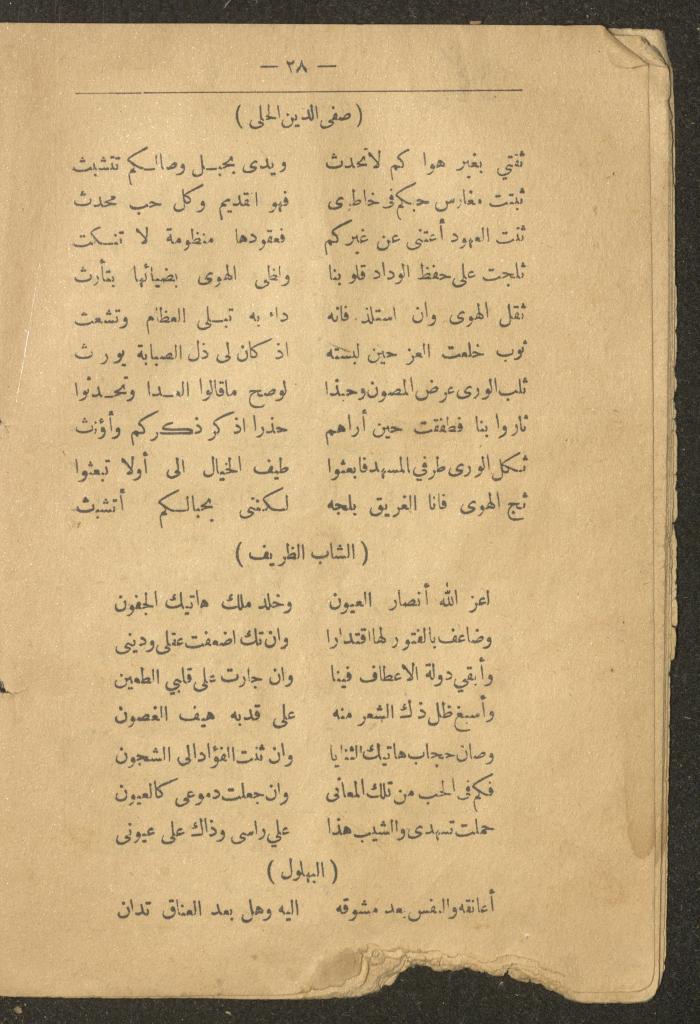 — ٢٨ —
( صفى الدين الحلى )
ثقتي بغير هوا كم لاتحدث ويدى بحبل وصالكم تتشبث
ثبتت مغارس حبكم فى خاطرى فهو القديم وكل حب محدث
ثنت العهود أعنتى عن غيركم فعقودها منظومة لا تنكث
ثلجت على حفظ الوداد قلو بنا الهوى بضيائها يتأرث
ثقل الهوى وان استلذ فانه داء به تبلى العظام وتشعث
ثوب خلعت العز حين لبسته اذ كان لى ذل الصبابة يورث
ثلب الورى عرض المصون وحبذا لوصح ماقالوا العدا وتحدثوا
ثاروا بنا فطفقت حين أراهم حذرا اذكر ذكركم وأؤنث
ثكل الورى طرفي المسهد فابعثوا طيف الخيال الى أولا تبعثوا
ثج الهوى فانا الغريق بلجه لكننى بحبالكم أتشبث
( الشاب الظريف )
اعز الله أنصار العيون وخلد ملك هاتيك الجفون
وضاعف بالفتور لها اقتدارا وان تك اضعفت عقلى ودينى
وأبقي دولة الاعطاف فينا وان جارت على قلبي الطعين
وأسبغ ظل ذك الشعر منه على قدبه هيف الغصون
وصان حجاب هاتيك الثنايا وان ثنت الفؤاد الى الشجون
فكم فى الحب من تلك المعانى وان جعلت دموعى كالعيون
حملت تسهدى والشيب هذا علي راسى وذاك على عيونى
( البهلول )
أعانقه والنفس بعد مشوقه اليه وهل بعد العناق تدان